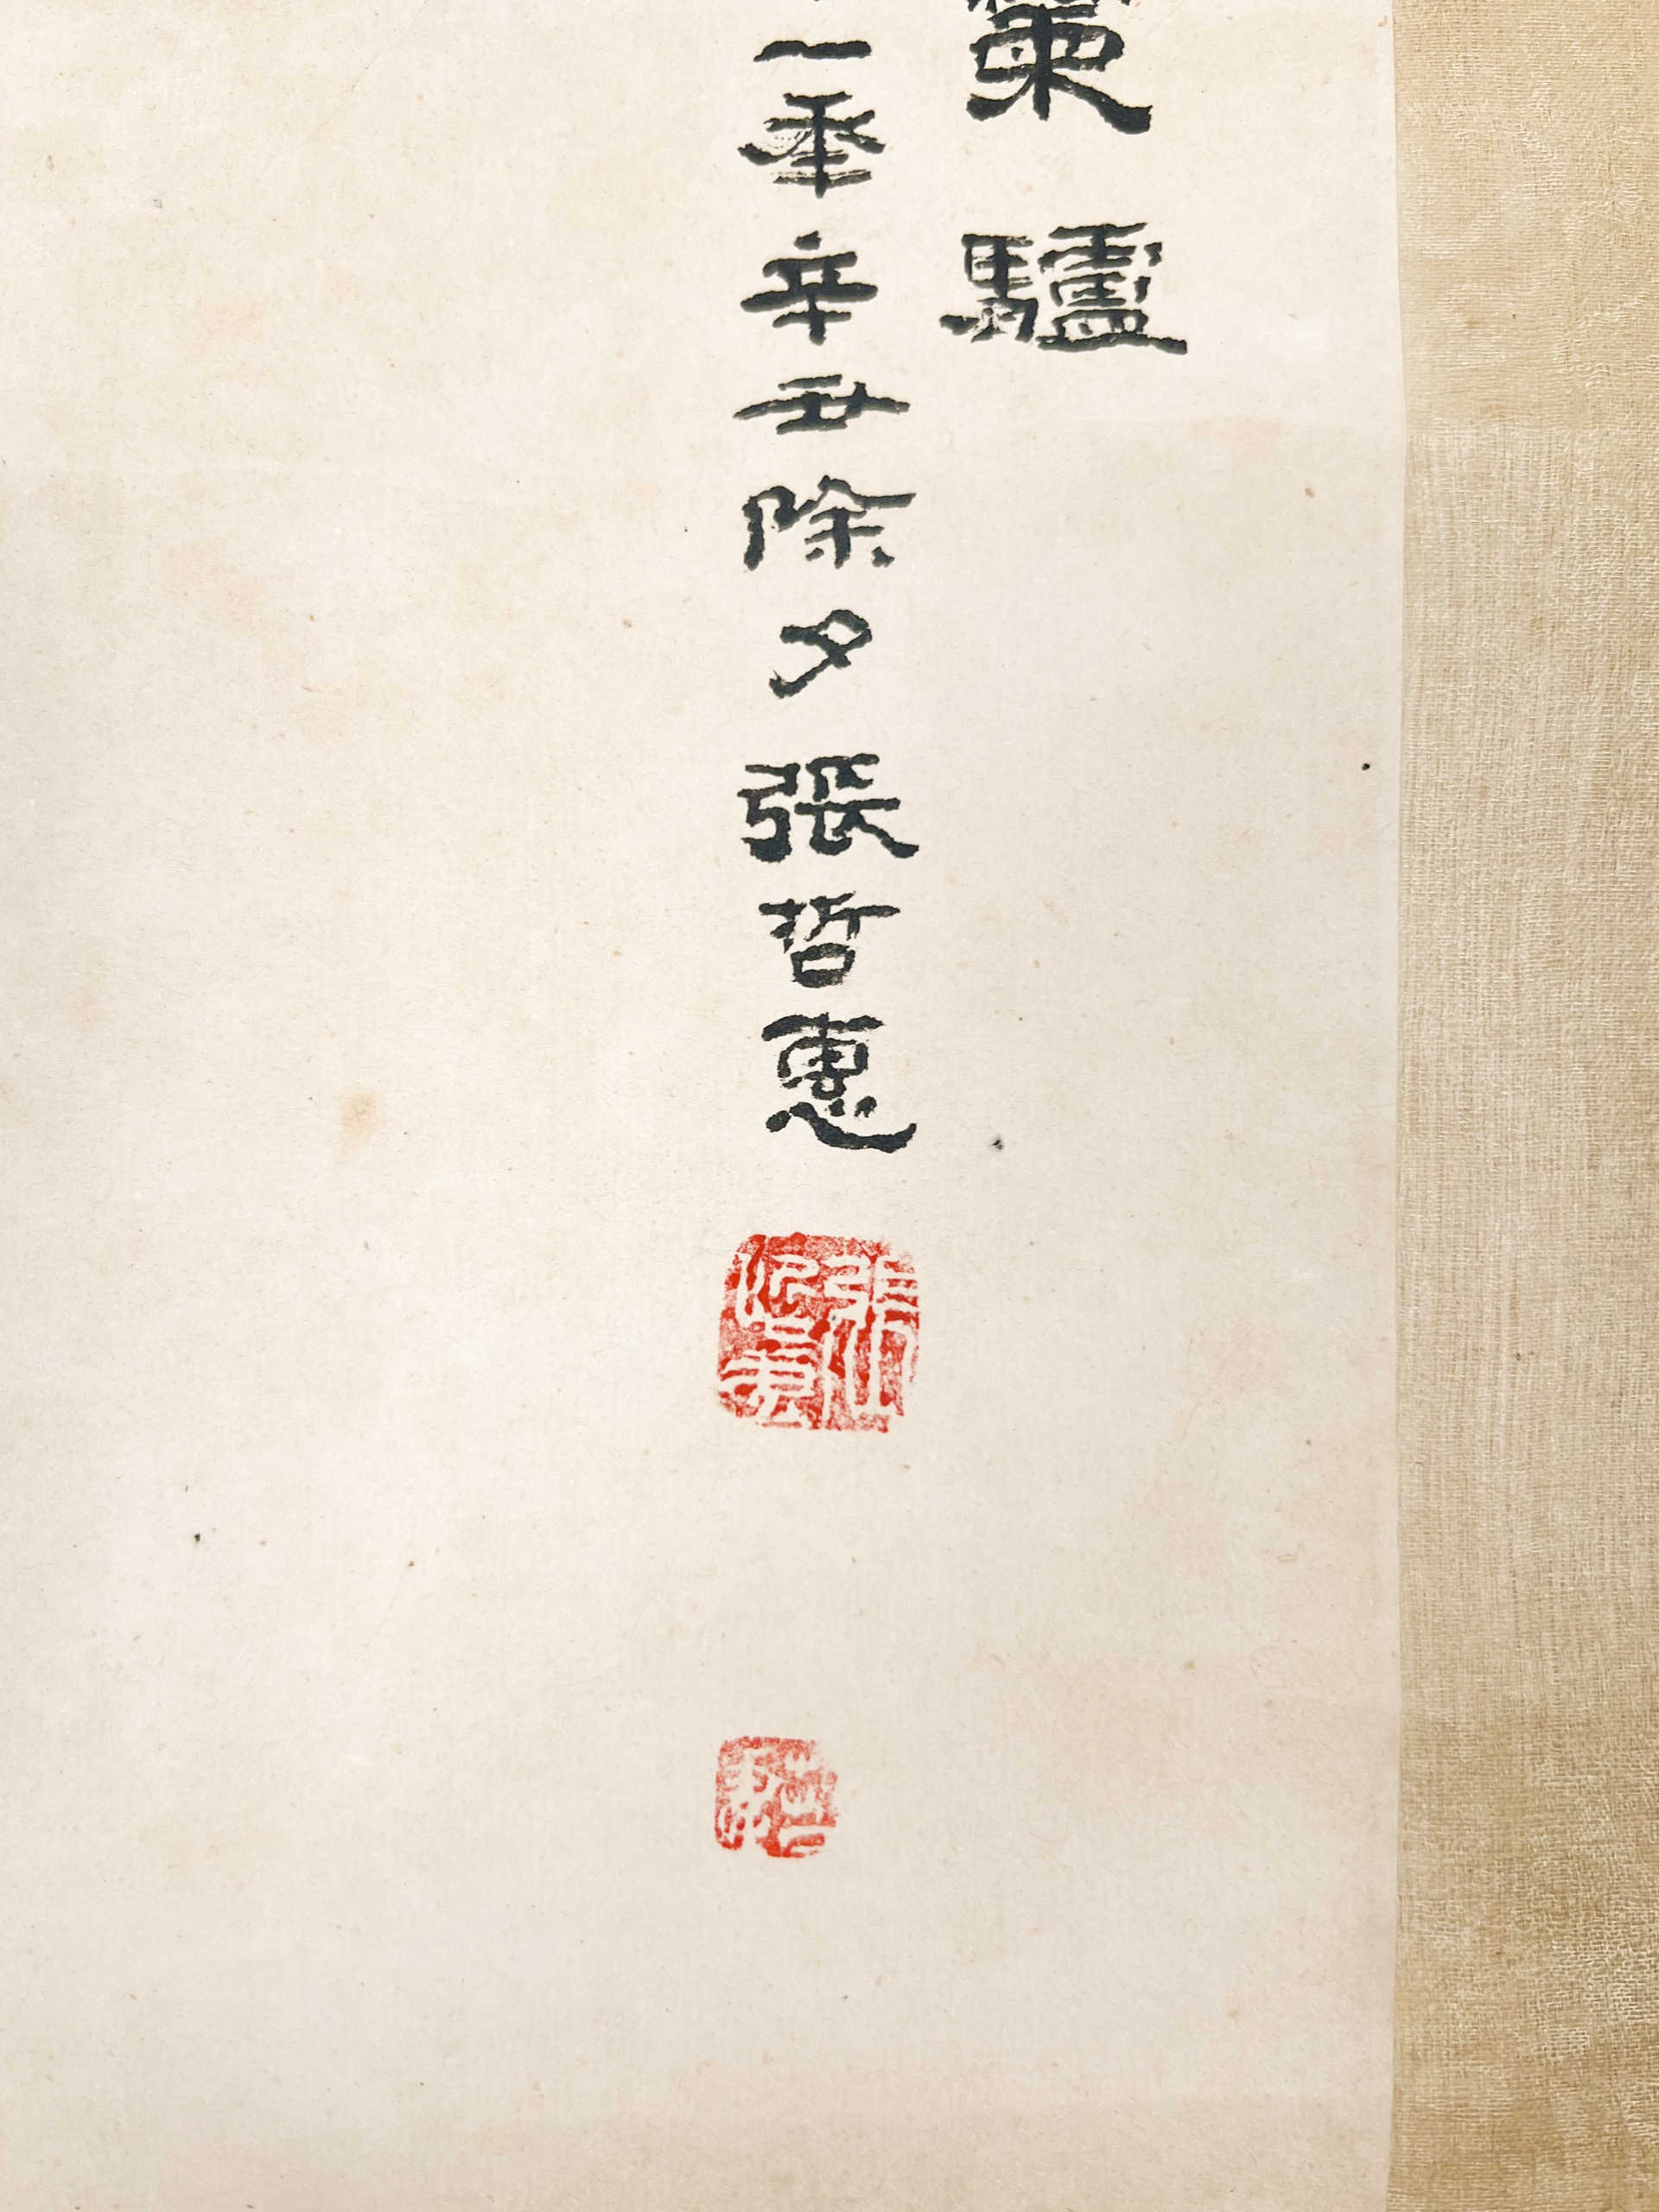 策驢
一年辛丑除夕張哲惠